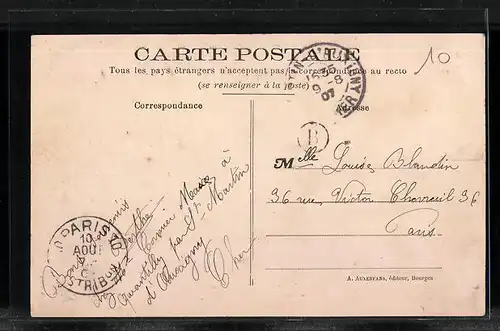 10
CARTE POSTALE
Tous les pays étrangers n'acceptent pas la correspondance au recto
(se renseigner à la poste)
Correspondance
Adresse
B
Mlle Louise Blandin
36 rue Victor Chevreuil 36
Paris.
PARIS
10
AOUT
DISTRIBUTION
Bons
Berthe
Tonnier Marie à
Quantilly par St Martin
d'Auxigny
Cher
A. AULENFANS, éditeur, Bourges